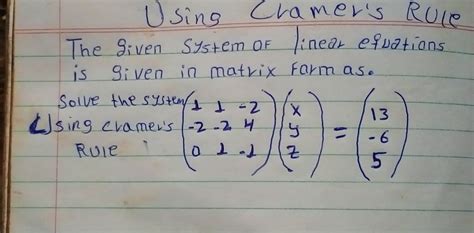 Using Cramer's Rule
The given System of linear equations
is given in matrix form as.
Solve the system (1 1 -2) (x) (13)
Using cramer's (-2 -2 4) (y) = (-6)
Rule (0 1 -1) (z) (5)